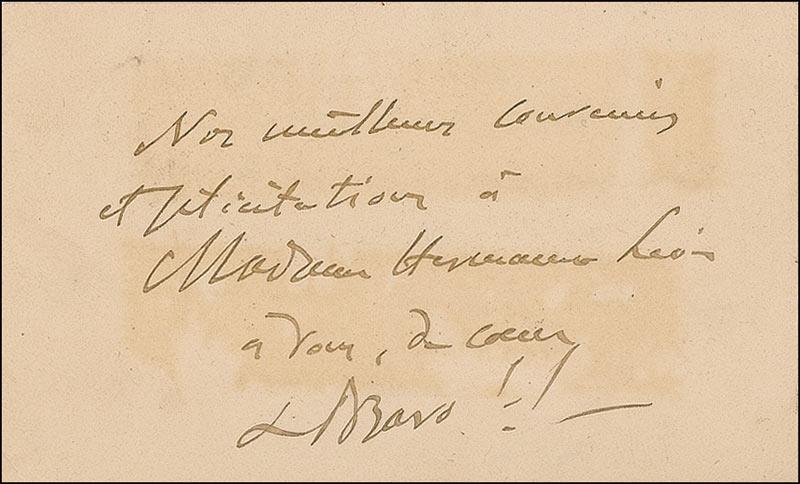 Nos meilleurs souvenirs
et félicitations à
Madame Hermann Léon
à vous, de cœur
& Bravo !! —